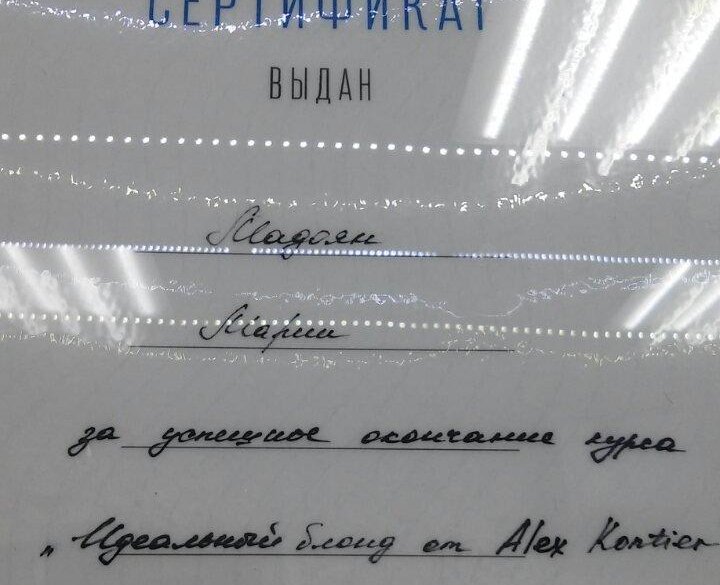 СЕРТИФИКАТ
ВЫДАН
Мадоян
Марии
за успешное окончание курса
„Идеальный блонд от Alex Kontier